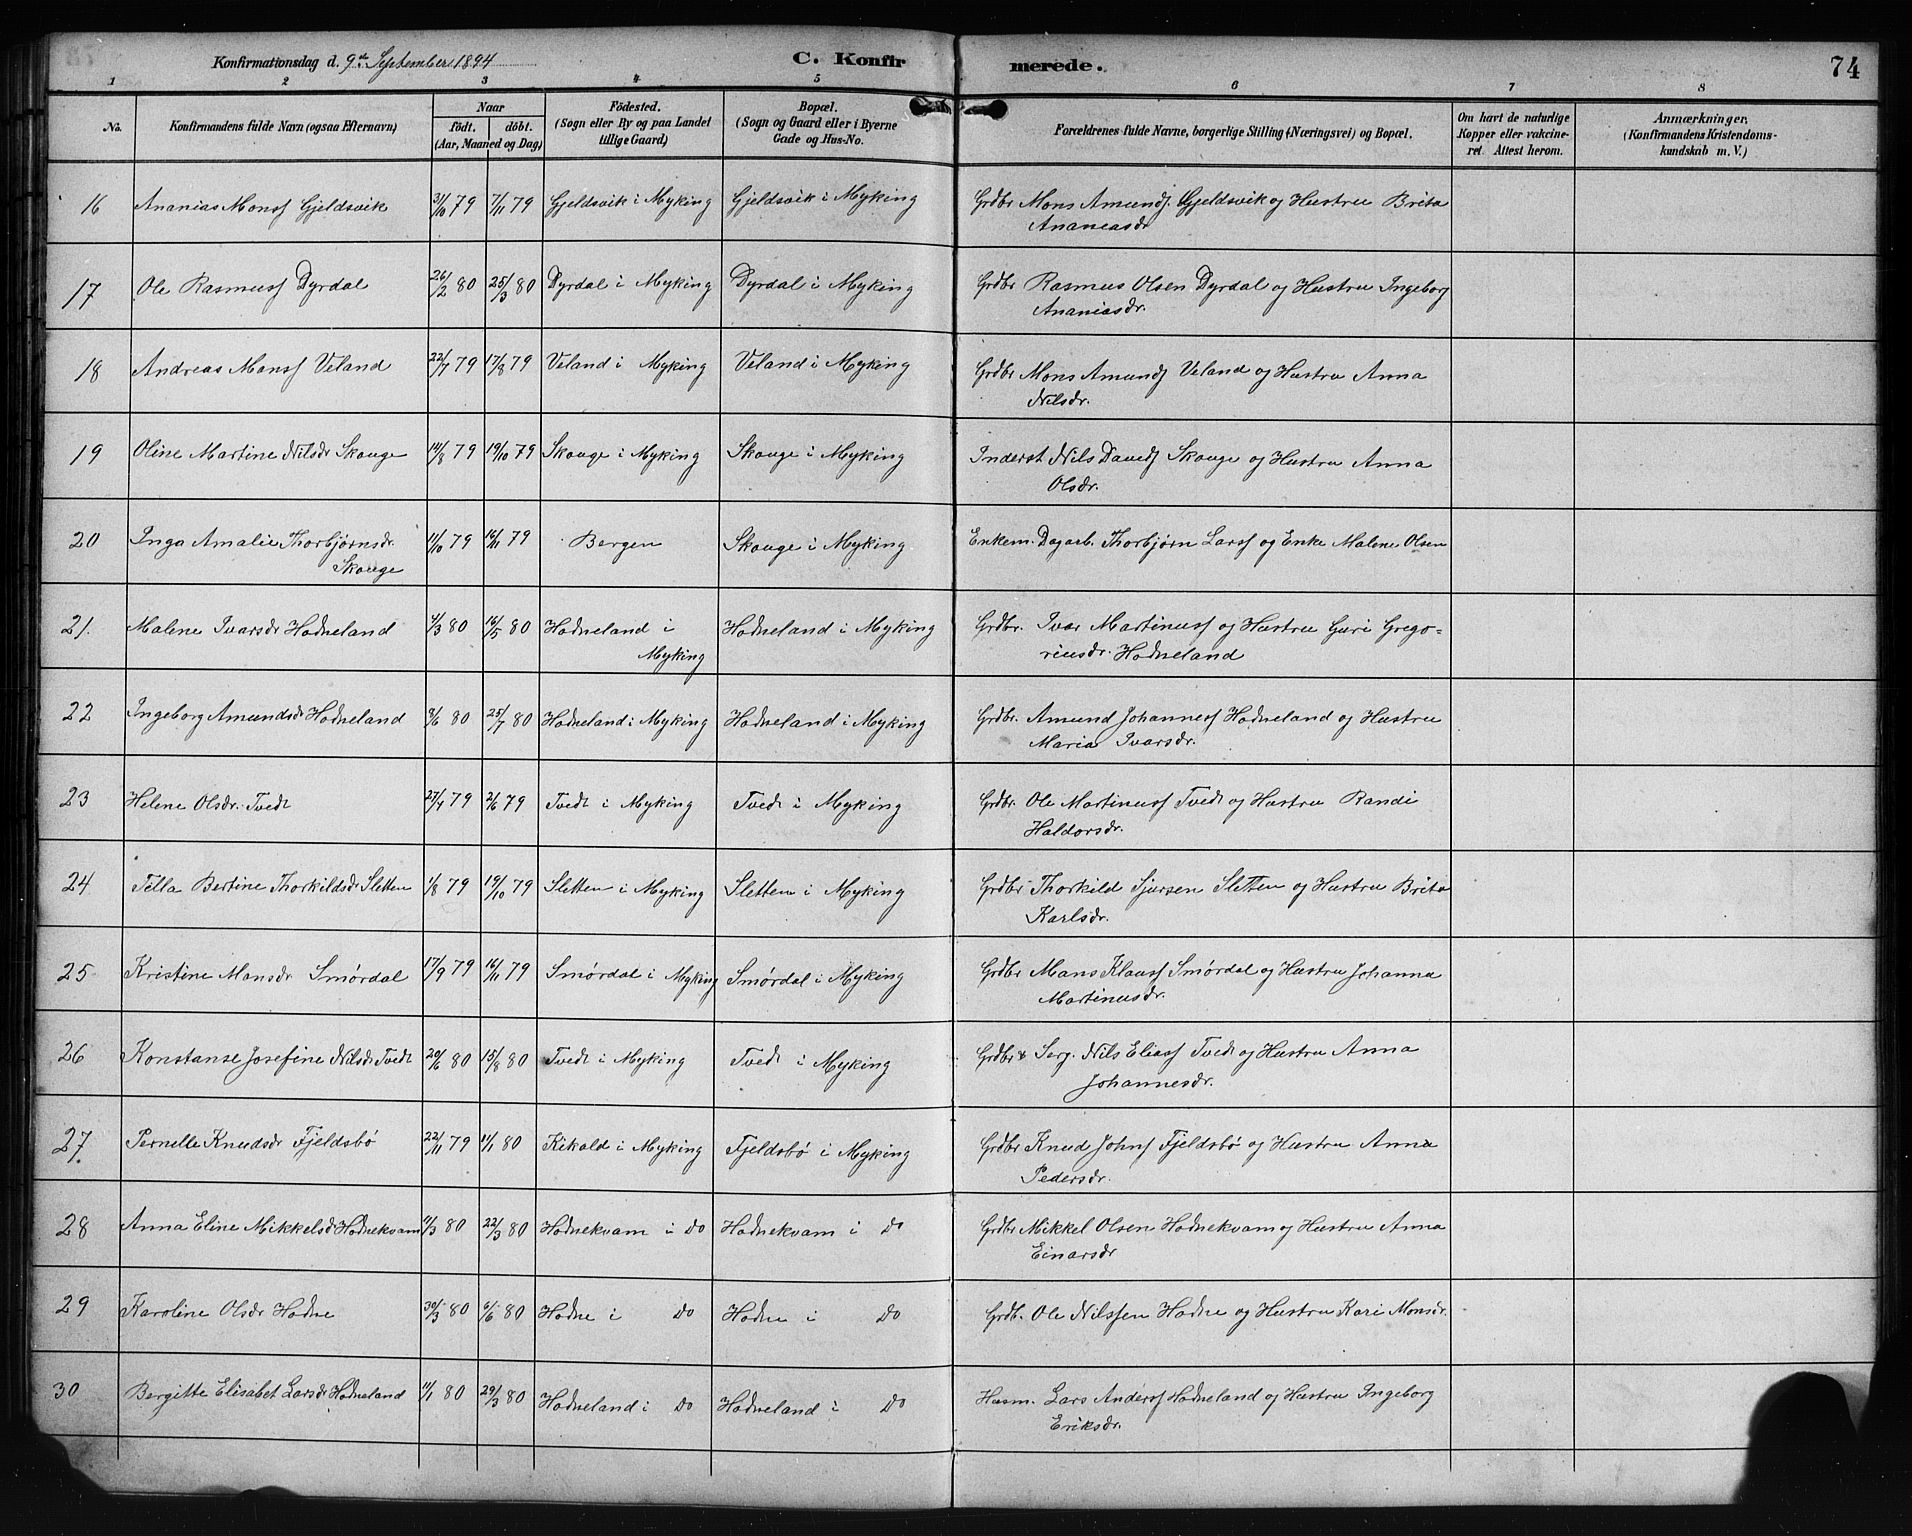 Konfirmationsdag d. 9de September 1894 C. Konfirmerede. 74
1 2 3 4 5 6 7 8
No. Konfirmandens fulde Navn (ogsaa Efternavn) Naar født. døbt. (Aar, Maaned og Dag) Födested. (Sogn eller By og paa Landet tillige Gaard) Bopæl. (Sogn og Gaard eller i Byerne Gade og Hus-No. Forældrenes fulde Navne, borgerlige Stilling (Næringsvei) og Bopæl. Om havt de naturlige Kopper eller vakcineret. Attest herom. Anmærkninger. (Konfirmandens Kristendomskundskab m. V.)
16 Ananias Monss Gjeldsvik 31/10 79 7/11 79 Gjeldsvik i Myking Gjeldsvik i Myking Grdbr Mons Amunds. Gjeldsvik og Hustru Brita
Ananiasdr
17 Ole Rasmuss Dyrdal 26/2 80 25/3 80 Dyrdal i Myking Dyrdal i Myking Grdbr Rasmus Olsen Dyrdal og Hustru Ingeborg
Ananiasdr.
18 Andreas Monss Veland 22/7 79 17/8 79 Veland i Myking Veland i Myking Grdbr Mons Amunds Veland og Hustru Anna
Nilsdr.
19 Oline Martine Nilsdr Skauge 14/8 79 19/10 79 Skauge i Myking Skauge i Myking Inderst Nils Davids Skauge og Hustru Anna
Olsdr.
20 Inga Amalie Thorbjørnsdr. 11/10 79 16/11 79 Bergen Skauge i Myking Enkem. Dagarb. Thorbjørn Larss og Enke Malene Olsen
Skauge
21. Malene Ivarsdr Hodneland 4/3 80 16/5 80 Hodneland i Hodneland i Myking Grdbr. Ivar Martinuss og Hustru Guri Grego-
Myking riusdr. Hodneland
22 Ingeborg Amundsdr Hodneland 9/6 80 25/7 80 Hodneland i Myking Hodneland i Myking Grdbr. Amund Johanness Hodneland og Hustru
Maria Ivarsdr.
23 Helene Olsdr. Tvedt 27/4 79 2/6 79 Tvedt i Myking Tvedt i Myking Grdbr. Ole Martinuss Tvedt og Hustru Randi
Haldorsdr.
24 Tella Bertine Thorkildsdr Sletten 1/8 79 19/10 79 Sletten i Myking Sletten i Myking Grdbr Thorkild Sjursen Sletten og Hustru Brita
Karlsdr.
25 Kristine Monsdr Smørdal 17/9 79 16/11 79 Smørdal i Myking Smørdal i Myking Grdbr Mons Klauss Smørdal og Hustru Johanna
Martinusdr.
26 Konstanse Josefine Nilsdr Tvedt 20/6 80 15/8 80 Tvedt i Myking Tvedt i Myking Grdbr & Serg. Nils Eliass Tvedt og Hustru Anna
Johannesdr.
27. Pernelle Knudsdr Fjeldsbø 22/11 79 11/1 80 Kikald i Myking Fjeldsbø i Myking Grdbr Knud Johns Fjeldsbø og Hustru Anna
Pedersdr.
28 Anna Eline Mikkelsdr Hodnekvam 11/3 80 22/3 80 Hodnekvam i Do Hodnekvam i Do Grdbr Mikkel Olsen Hodnekvam og Hustru Anna
Einarsdr
29 Karoline Olsdr Hodne 30/3 80 6/6 80 Hodne i Do Hodne i Do Grdb. Ole Nilssen Hodne og Hustru Kari Monsdr.
30 Bergitte Elisabet Larsdr Hodneland 11/1 80 29/3 80 Hodneland i Do Hodneland i Do Husm. Lars Anderss Hodneland og Hustru Ingeborg
Eriksdr.